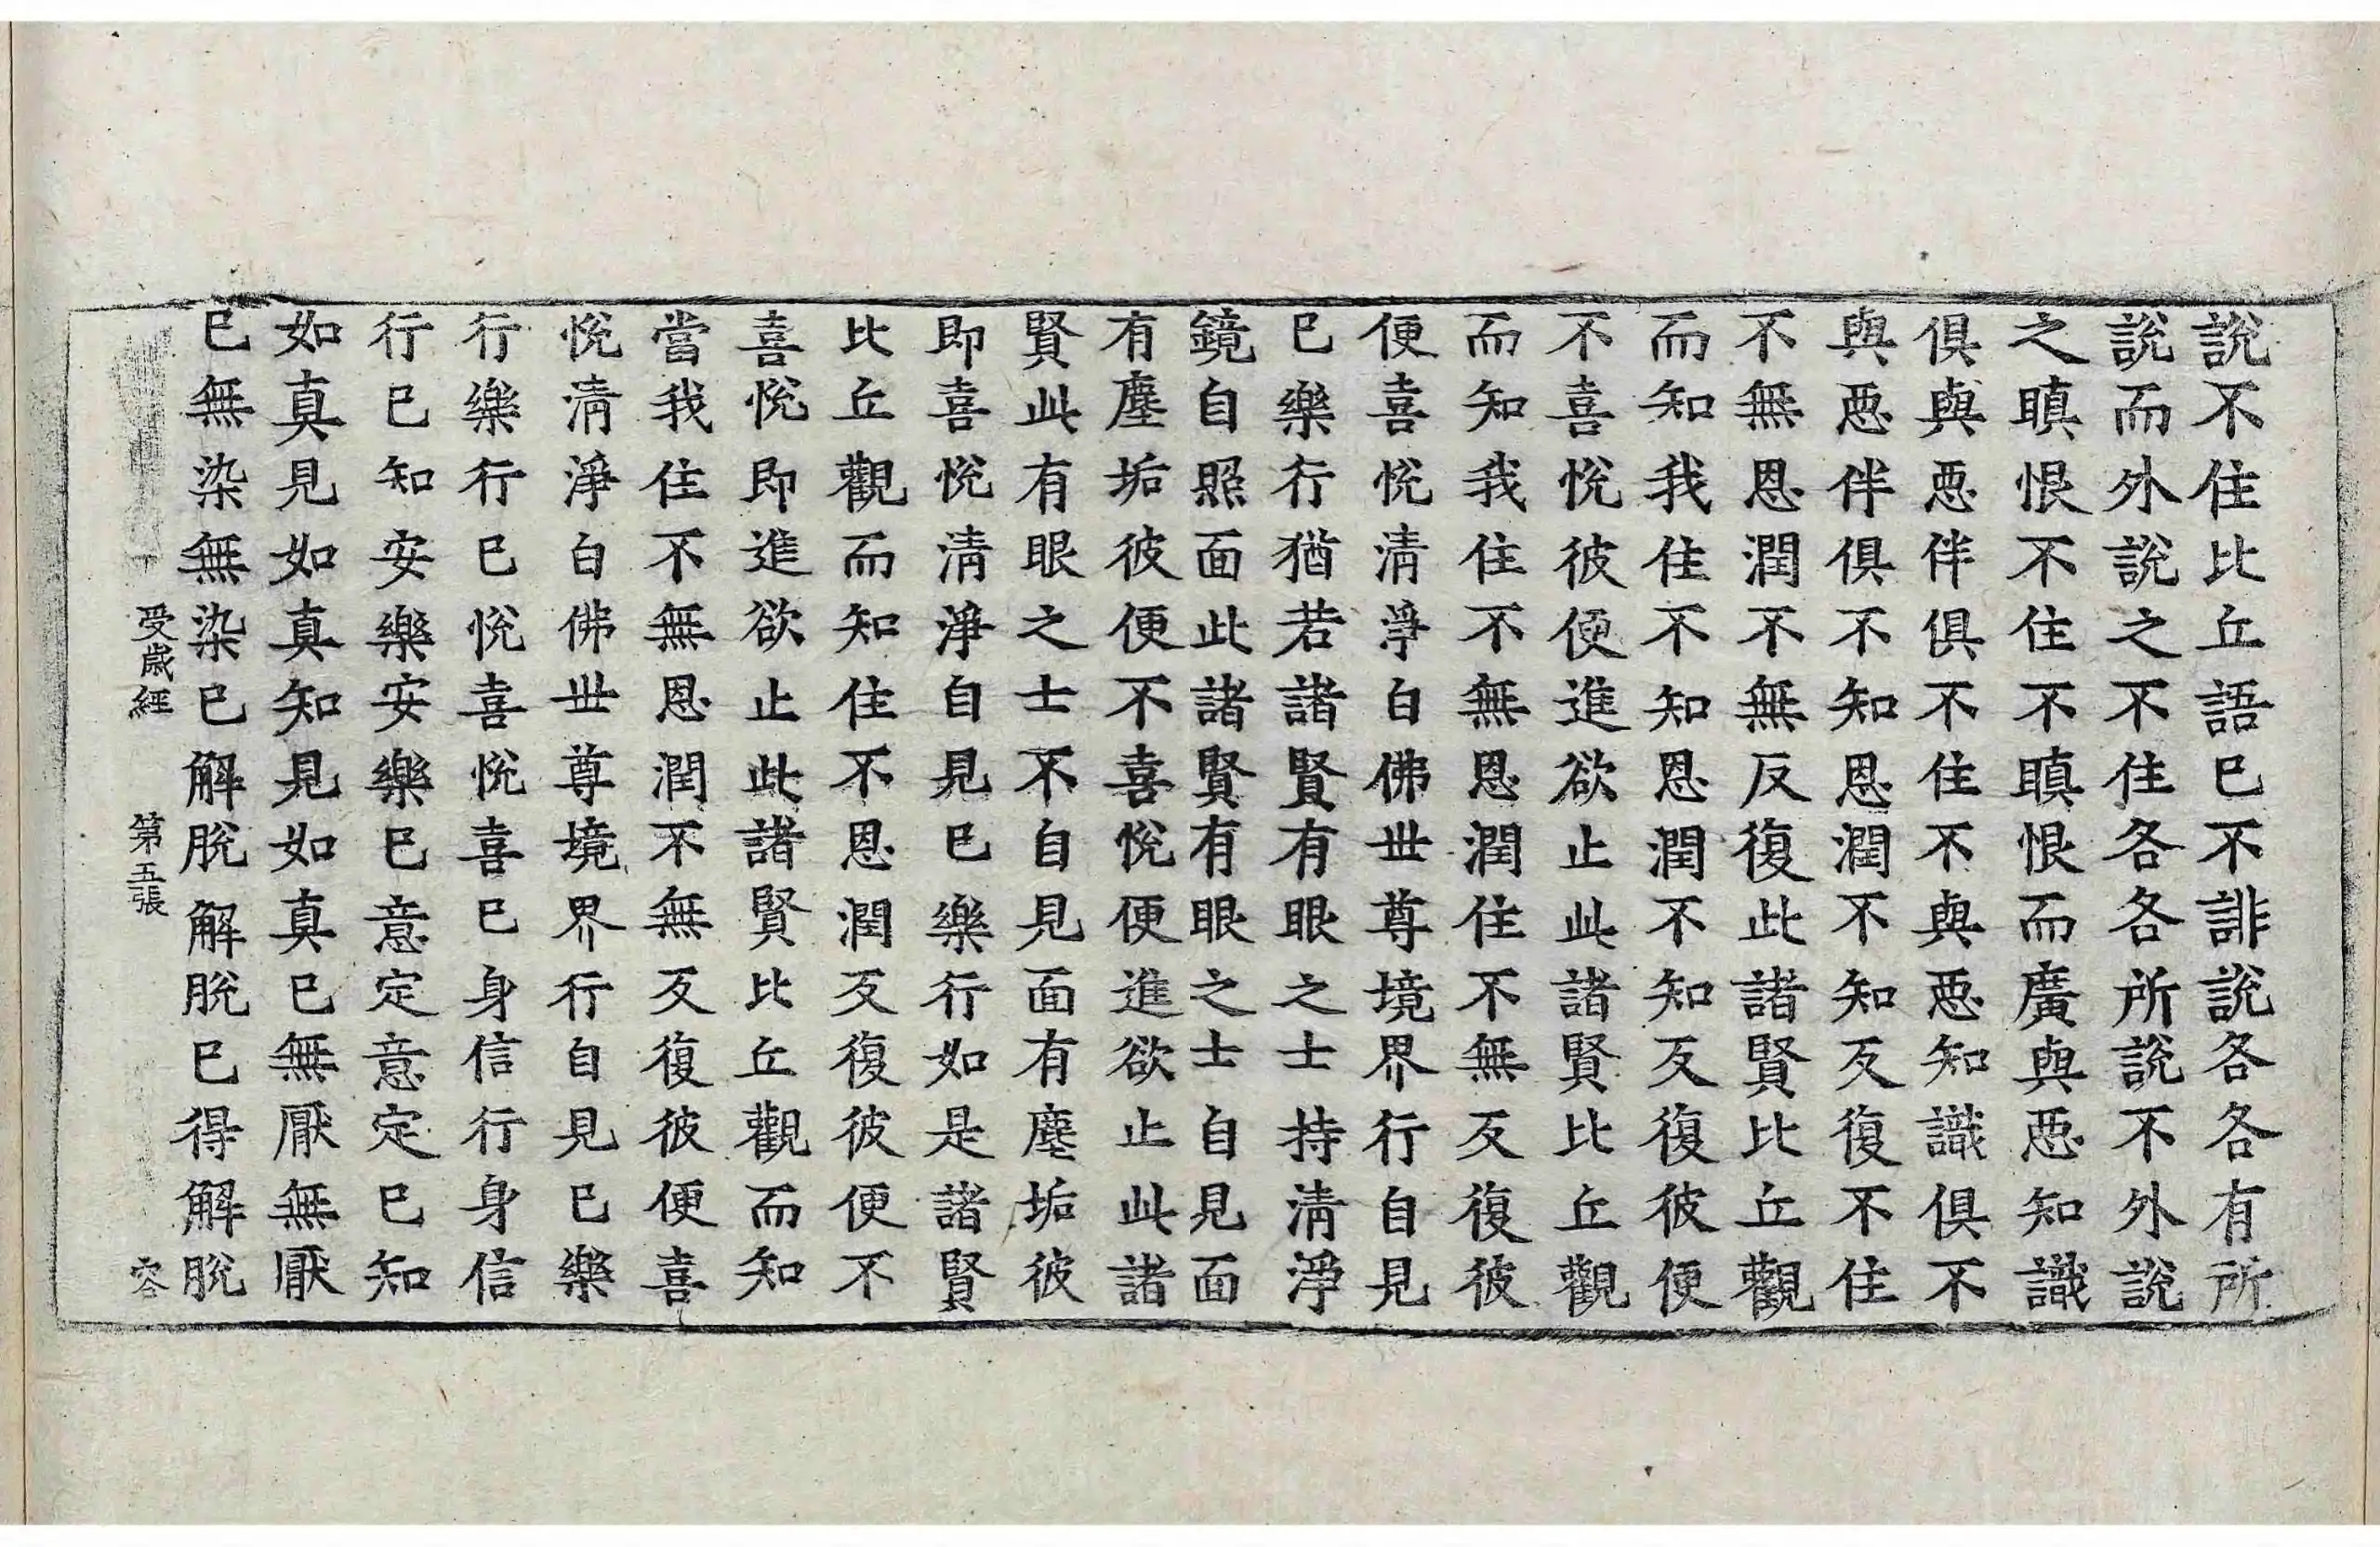 說不住比丘語已不誹說各各有所
說而外說之不住各各所說不外說
之瞋恨不住不瞋恨而廣與惡知識
俱與惡伴俱不住不與惡知識俱不
與惡伴俱不知恩潤不知反復不住
不無恩潤不無反復此諸賢比丘觀
而知我住不知恩潤不知反復彼便
不喜悅彼便進欲止此諸賢比丘觀
而知我住不無恩潤住不無反復彼
便喜悅清淨白佛世尊境界行自見
已樂行猶若諸賢有眼之士持清淨
鏡自照面此諸賢有眼之士自見面
有塵垢彼便不喜悅便進欲止此諸
賢此有眼之士不自見面有塵垢彼
即喜悅清淨自見已樂行如是諸賢
比丘觀而知住不恩潤反復彼便不
喜悅即進欲止此諸賢比丘觀而知
當我住不無恩潤不無反復彼便喜
悅清淨白佛世尊境界行自見已樂
行樂行已悅喜悅喜已身信行身信
行已知安樂安樂已意定意定已知
如真見如真知見如真已無厭無厭
已無染無染已解脫解脫已得解脫
受歲經 第五張 容